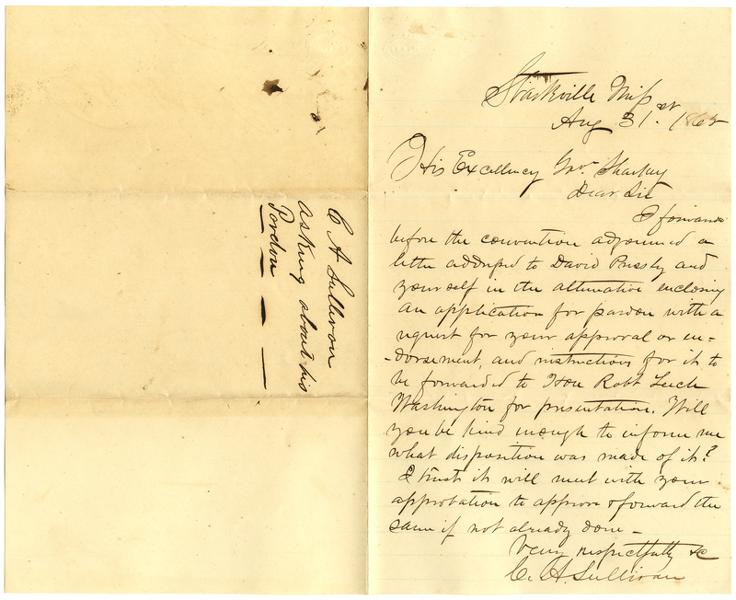 C A Sullivan
asking about his
Pardon
Starkville Miss
Aug 31st 1865
His Excellency Gov Sharkey
Dear Sir
I forwarded
before the convention adjourned a
letter addressed to David Pressly and
yourself in the alternative enclosing
an application for pardon with a
request for your approval or en-
-dorsement, and instructions for it to
be forwarded to Hon Robt Leech
Washington for presentation. Will
you be kind enough to inform me
what disposition was made of it?
I trust it will meet with your
approbation to approve & forward the
same if not already done -
Very respectfully &c
C. A. Sullivan